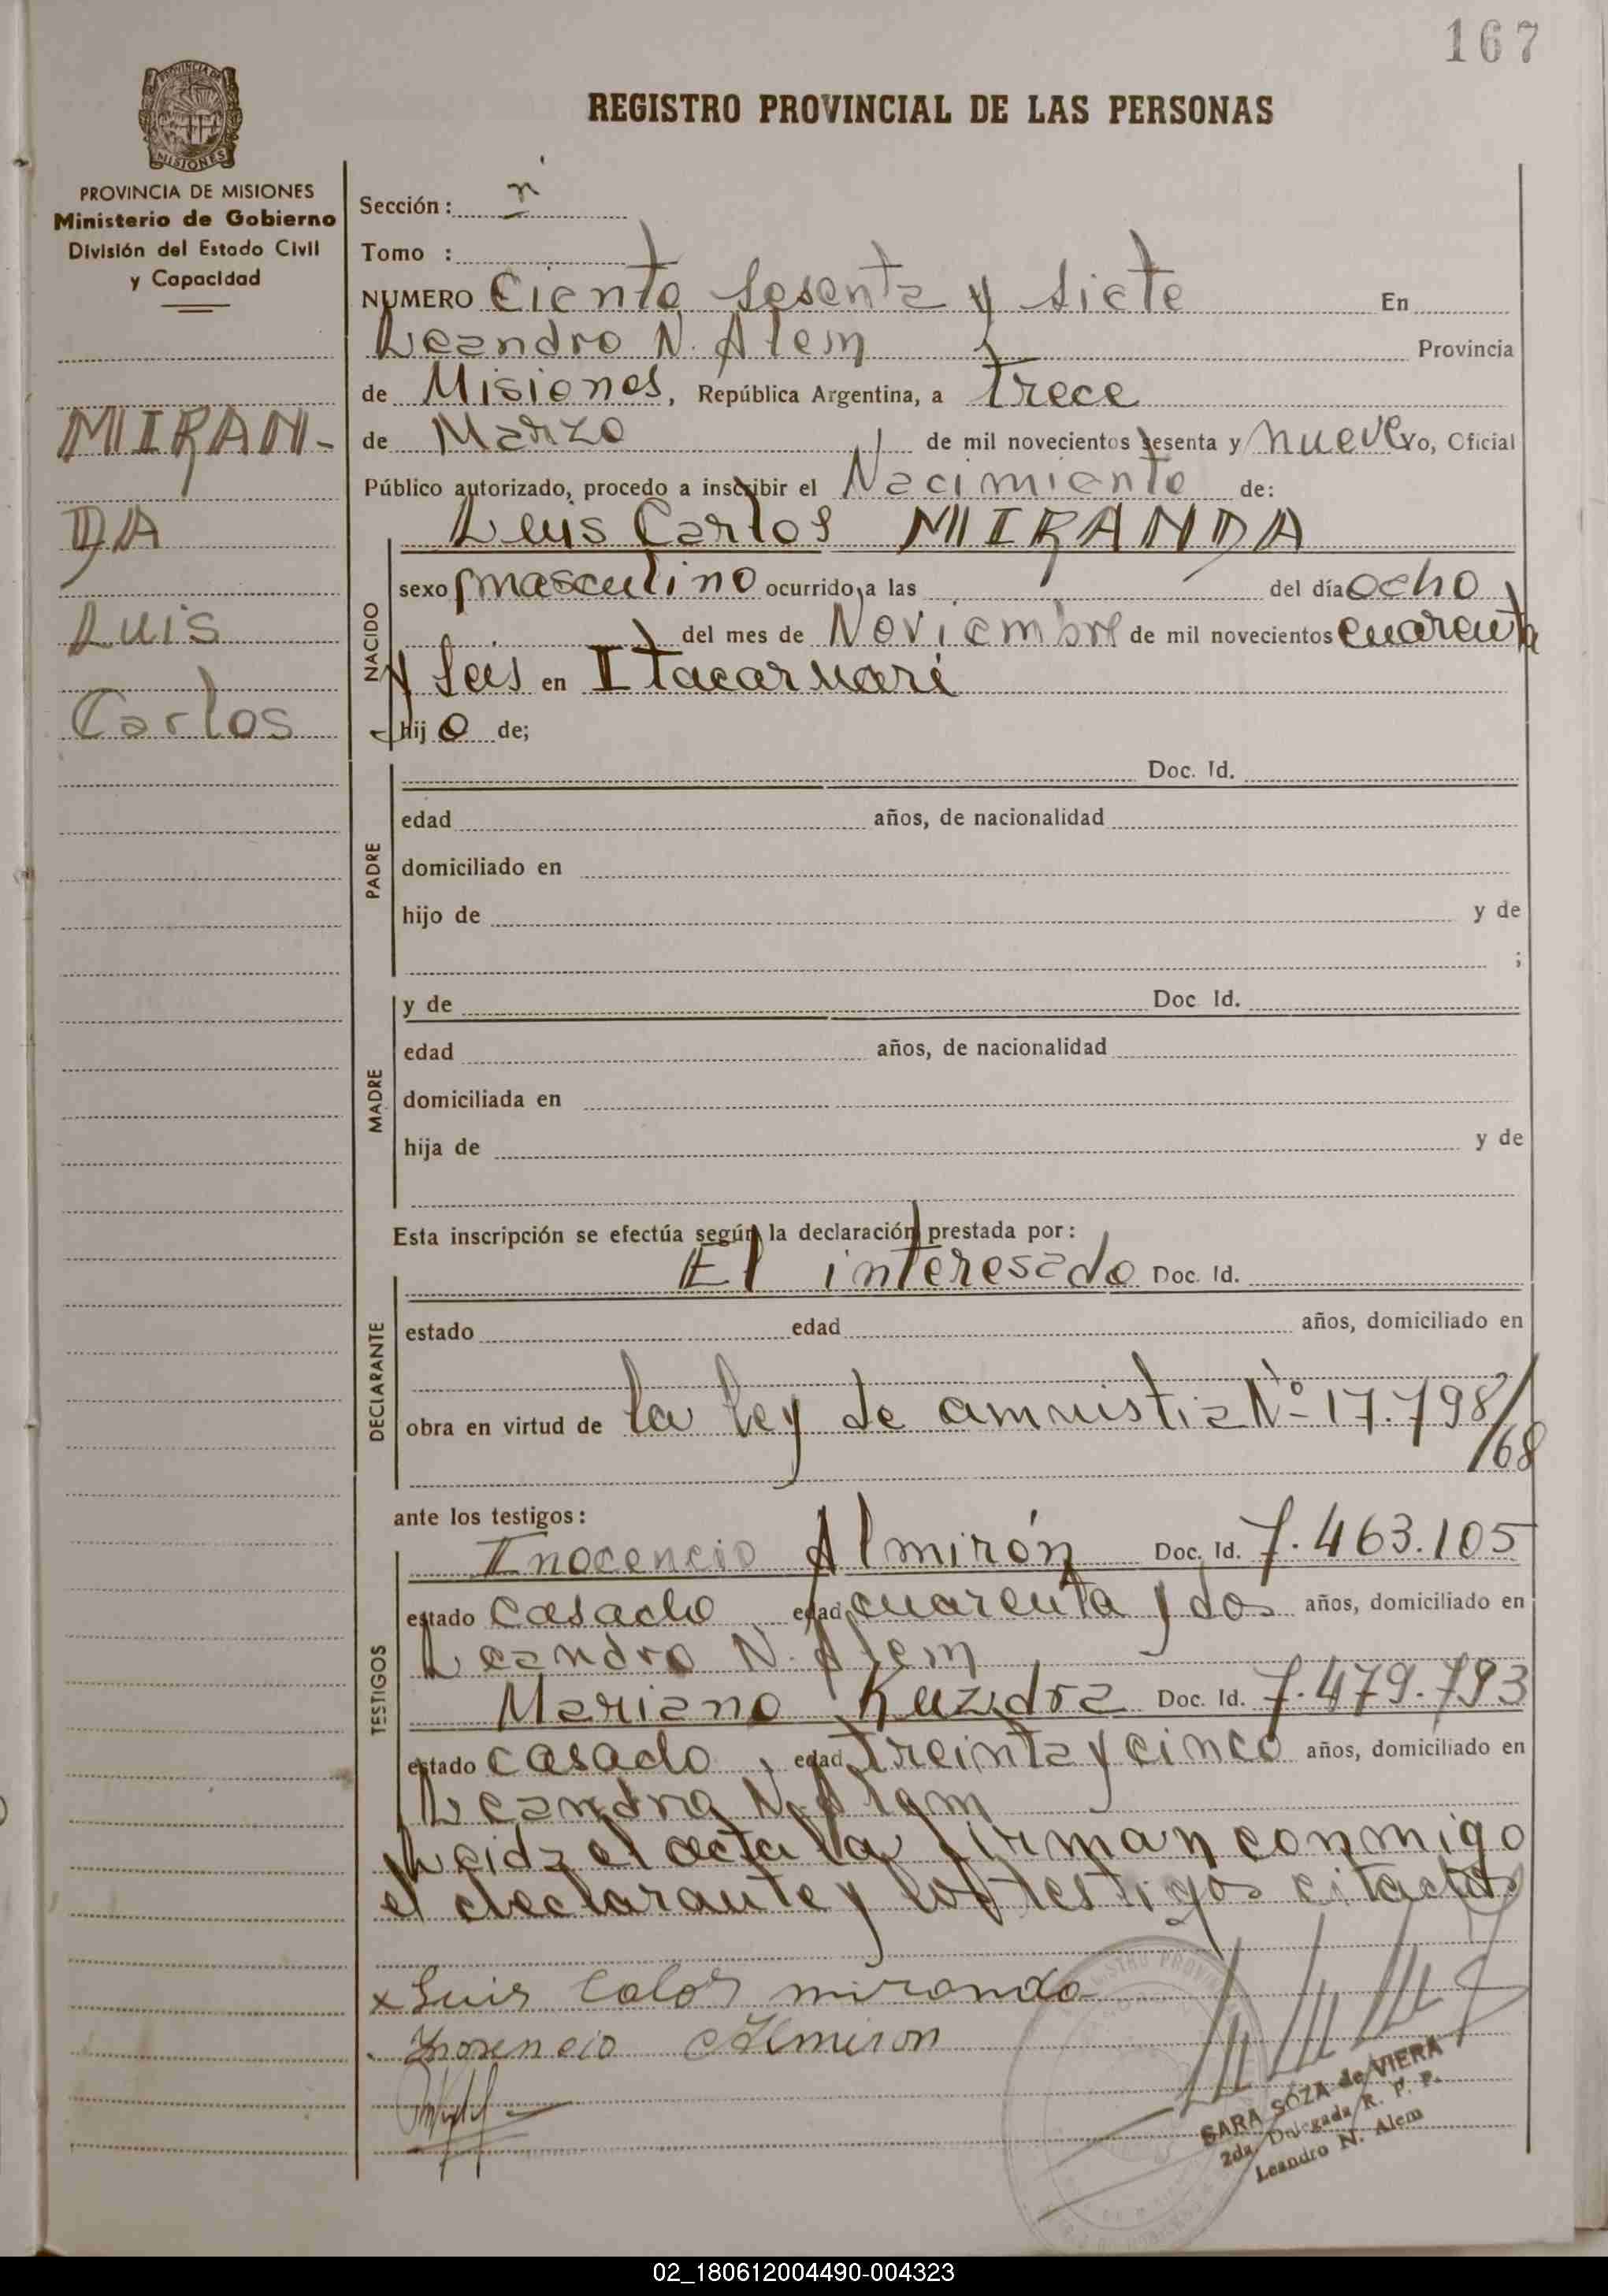 167
PROVINCIA DE
MISIONES
REGISTRO PROVINCIAL DE LAS PERSONAS
PROVINCIA DE MISIONES
Ministerio de Gobierno
División del Estado Civil
y Capacidad
MIRAN-
DA
Luis
Carlos
Sección:
Tomo :
NUMERO Ciento Sesenta y Siete En
Leandro N. Alem Provincia
de Misiones, República Argentina, a trece
de Marzo de mil novecientos sesenta y nueve yo, Oficial
Público autorizado, procedo a inscribir el Nacimiento de:
NACIDO
Luis Carlos MIRANDA
sexo masculino ocurrido a las del día ocho
del mes de Noviembre de mil novecientos cuarenta
y seis en Itacaruaré
hijo de;
PADRE
Doc. Id.
edad años, de nacionalidad
domiciliado en
hijo de y de
;
MADRE
y de Doc. Id.
edad años, de nacionalidad
domiciliada en
hija de y de
Esta inscripción se efectúa según la declaración prestada por:
DECLARANTE
El interesado Doc. Id.
estado edad años, domiciliado en
obra en virtud de la ley de amnistia Nº 17.798/
/68
ante los testigos:
TESTIGOS
Inocencio Almirón Doc. Id. 7.463.105
estado casado edad cuarenta y dos años, domiciliado en
Leandro N. Alem
Mariano Kuzidra Doc. Id. 7.479.793
estado casado, edad treinta y cinco años, domiciliado en
Leandro N. Alem
Leida el acta la firman conmigo
el declarante y los testigos citados
x Luis Calos miranda
Inosencio Almiron
SARA SOZA de VIERA
2da. Delegada R. P. P.
Leandro N. Alem
02_180612004490-004323